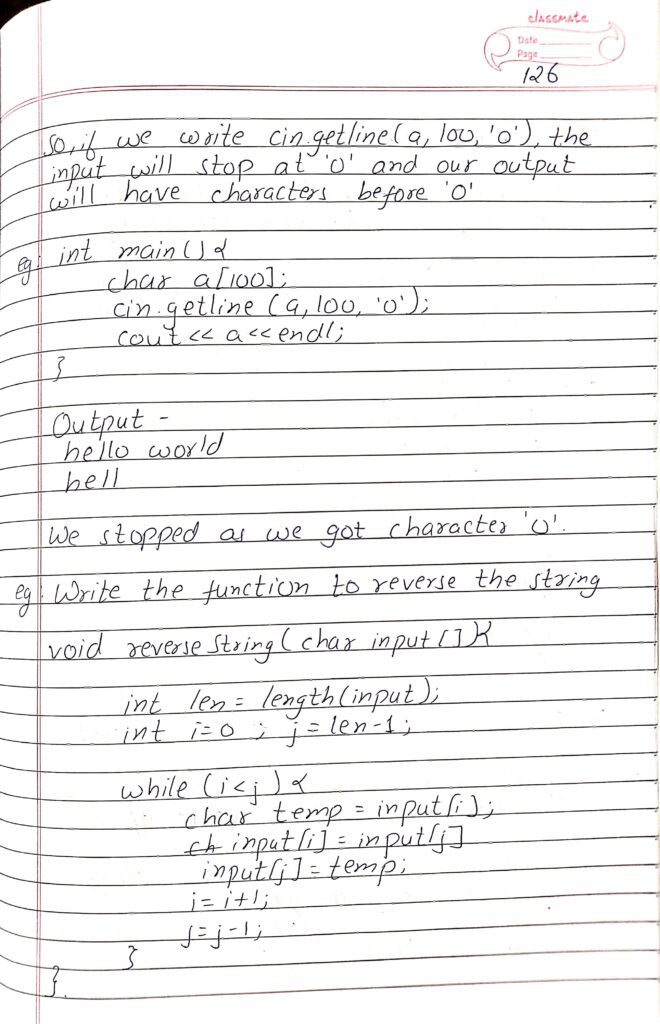 classmate
Date
Page
126
So, if we write cin.getline(a, 100, 'o'), the
input will stop at 'o' and our output
will have characters before 'o'
eg: int main() {
char a[100];
cin.getline (a, 100, 'o');
cout << a << endl;
}
Output -
hello world
hell
We stopped as we got character 'o'.
eg: Write the function to reverse the string
void reverse String ( char input []){
int len = length(input);
int i=0 ; j = len-1;
while (i<j) {
char temp = input[i];
ch input[i] = input[j]
input[j] = temp;
i = i+1;
j = j-1;
}
}.